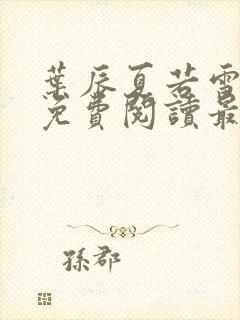 葉辰夏若雪
免費閱讀最
孫郡